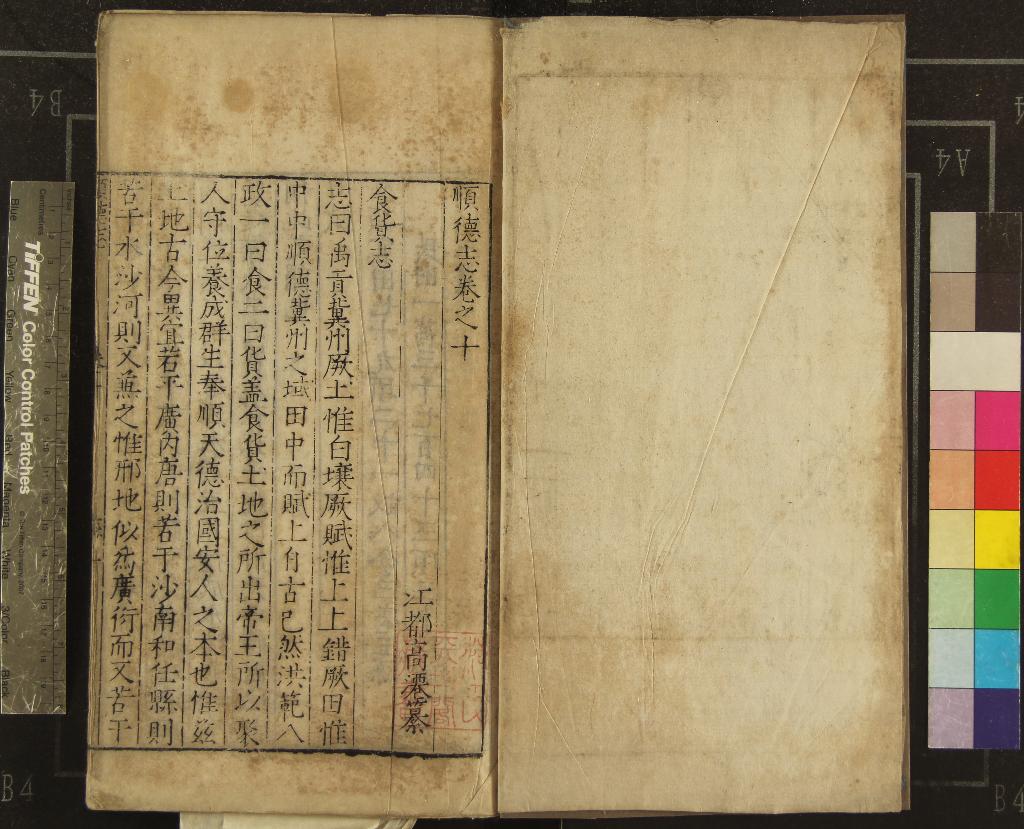 順德志卷之十
江都高澤纂
食貨志
志曰禹貢冀州厥土惟白壤厥賦惟上上錯厥田惟
中中順德冀州之域田中而賦上自古已然洪範八
政一曰食二曰貨蓋食貨土地之所出帝王所以聚
人守位養成群生奉順天德治國安人之本也惟茲
土地古今異宜若平廣內唐則苦于沙南和任縣則
苦于水沙河則又兼之惟邢地似為廣衍而又苦于
TIFFEN Color Control Patches
Centimetres
Blue
Cyan
Green
Yellow
Red
Magenta
White
3/Color
Black
B4
A4
B4
B4